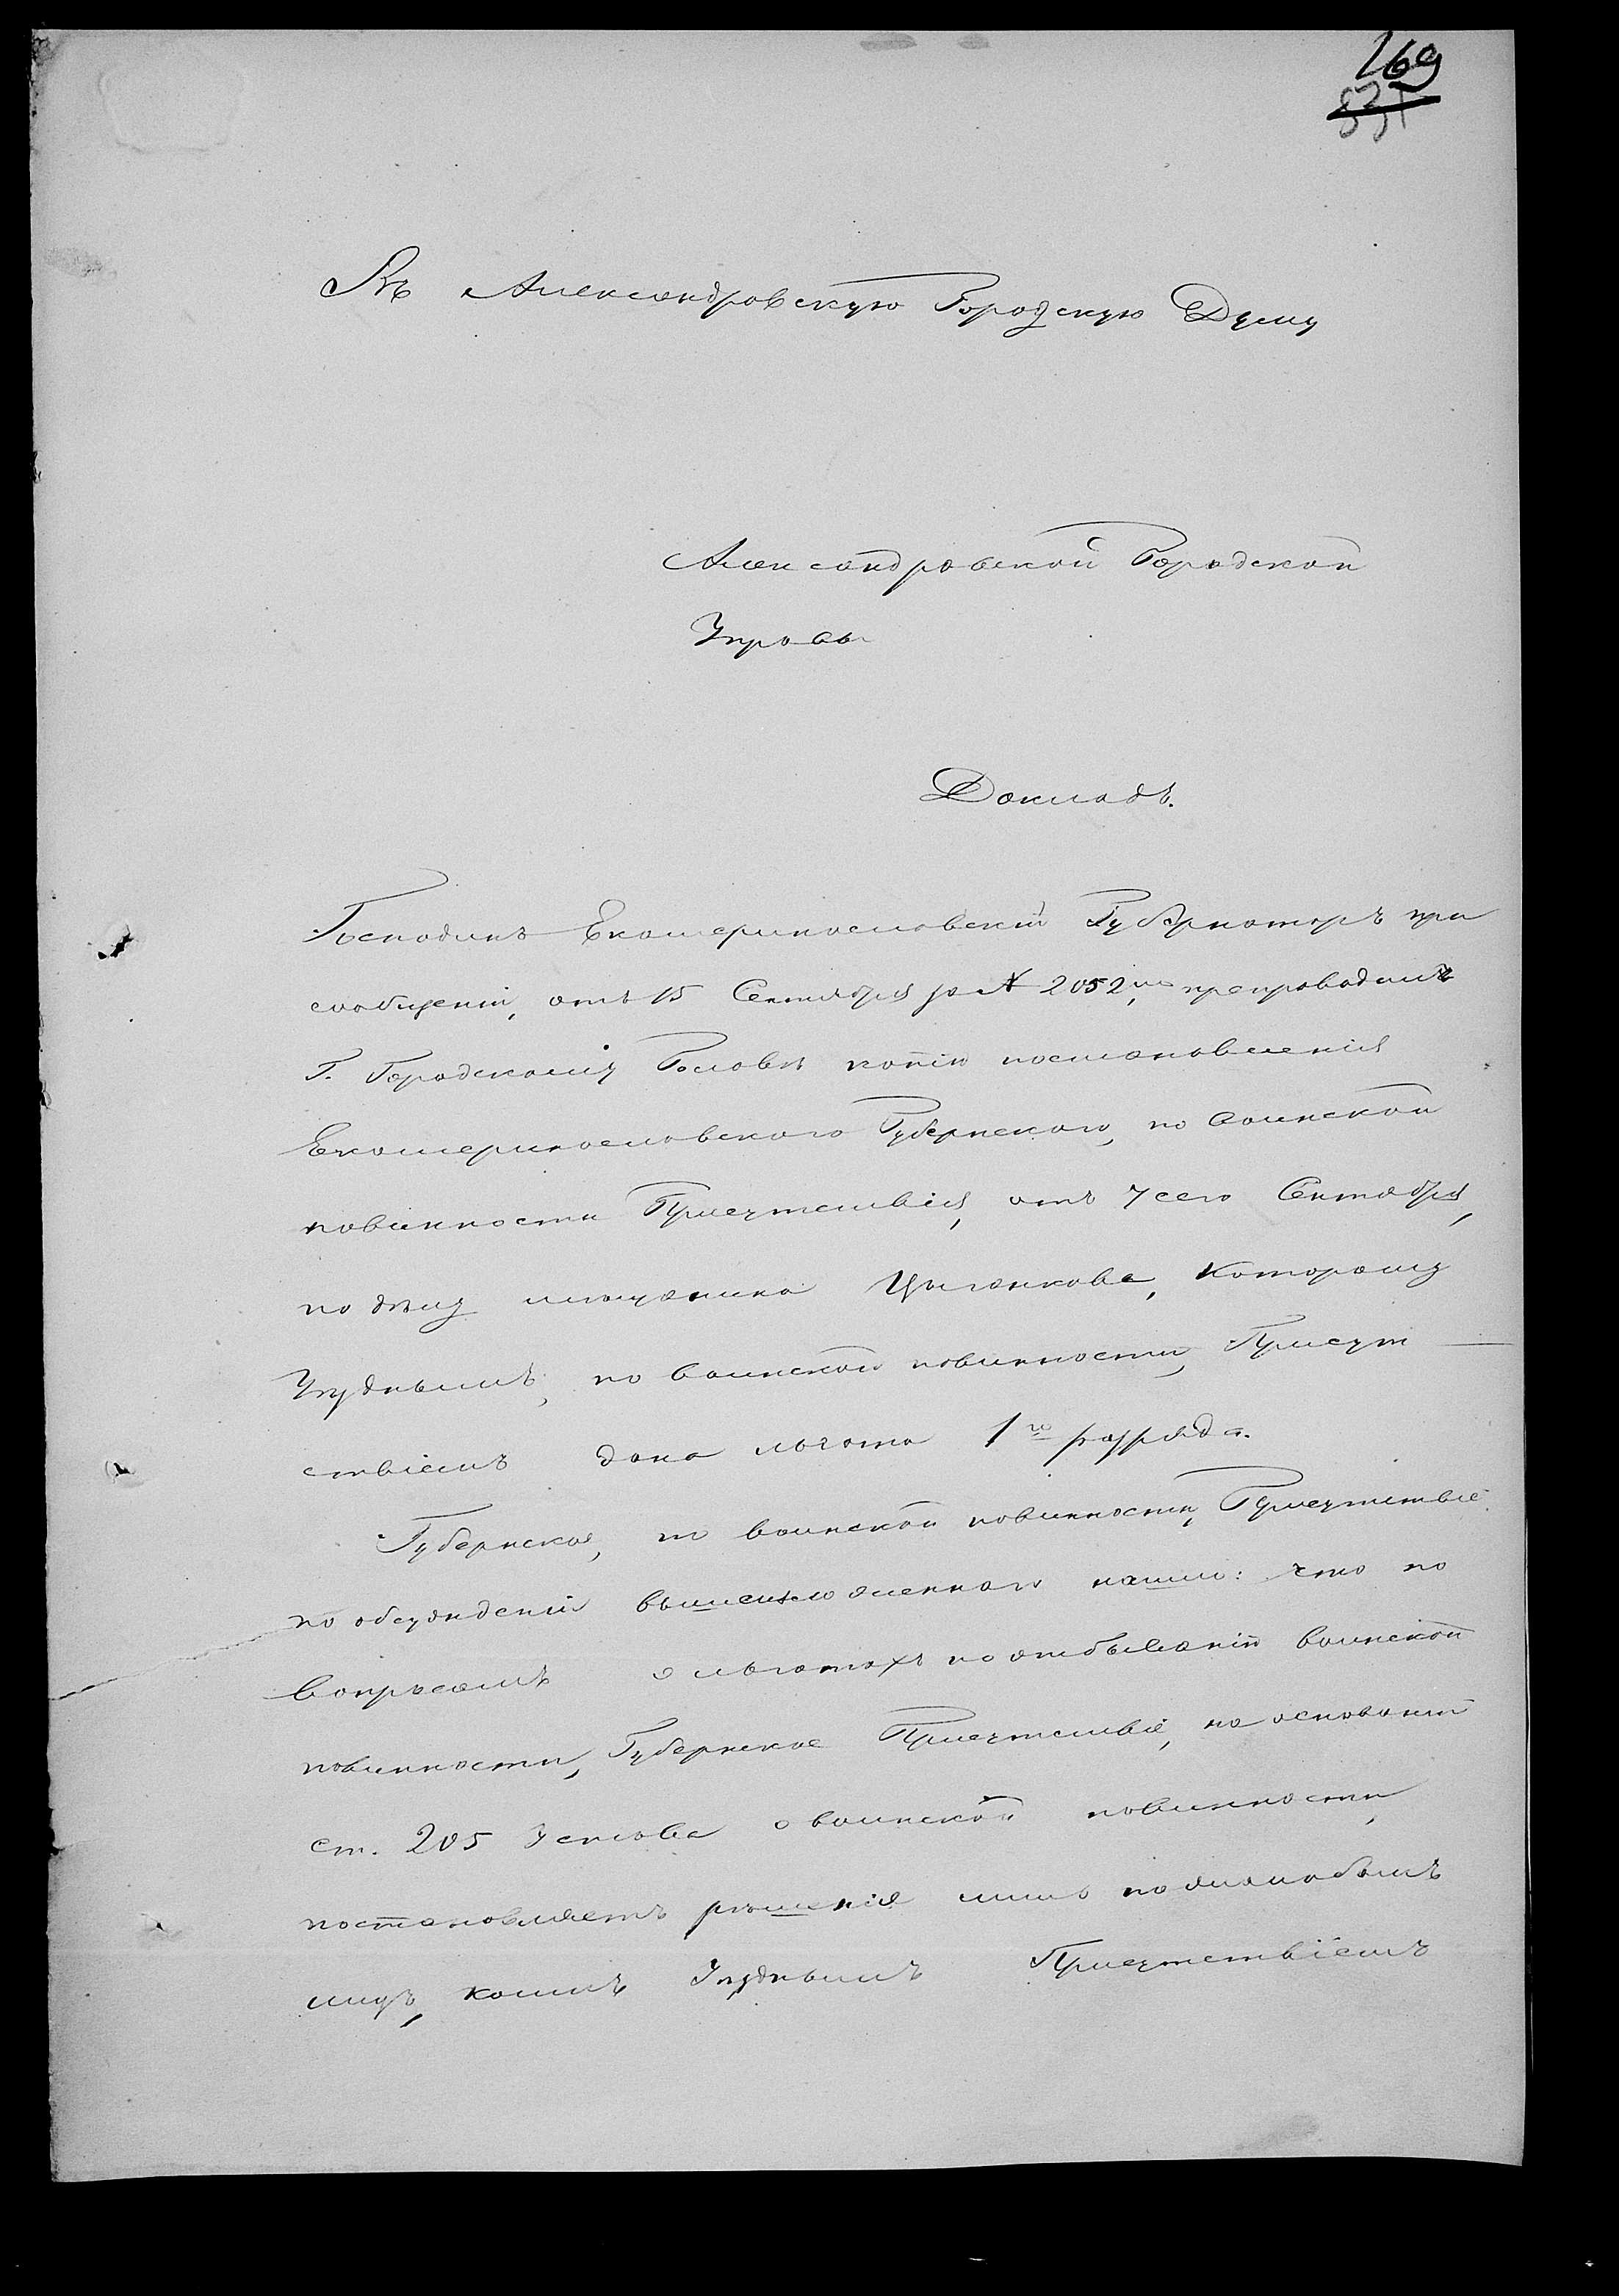 169
Въ Александровскую Городскую Думу
Александровской Городской
Управы
Докладъ.
Господинъ Екатеринославскій Губернаторъ при
сообщеніи, отъ 15 Сентября за № 2052, препроводилъ
Г. Городскому Головѣ копію постановленія
Екатеринославскаго Губернскаго, по воинской
повинности Присутствія, отъ 7 сего Сентября,
по дѣлу мѣщанина Цыганкова, которому
Уѣзднымъ, по воинской повинности, Присут
ствіемъ дана льгота 1го разряда.
Губернское, по воинской повинности, Присутствіе
по обсужденіи вышеизложеннаго нашло: что по
вопросамъ о льготахъ по отбыванію воинской
повинности, Губернское Присутствіе, на основаніи
ст. 205 Устава о воинской повинности,
постановляетъ рѣшенія лишь по жалобамъ
лицъ, коимъ Уѣзднымъ Присутствіемъ